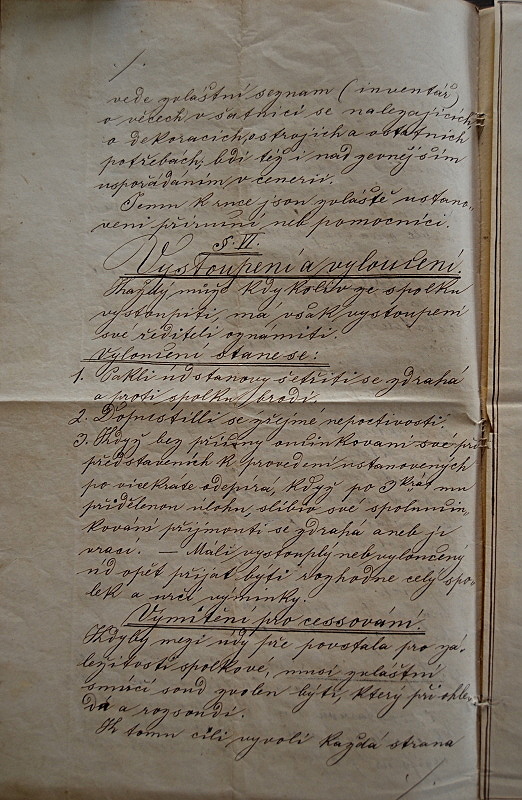 vede zvláštní seznam (inventář)
o věcech v šatnici se nalezajících,
o dekoracích, ostrojích a ostatních
potřebách, bdí též i nad zevnějším
uspořádáním v cenerii.
Jemu k ruce jsou zvláště ustano-
veni přiručí neb pomocníci.
§. VI.
Vystoupení a vyloučení.
Každý může kdykoliv ze spolku
vystoupiti, má však vystoupení
své řediteli oznámiti.
Vyloučení stane se:
1. Jakli úd stanovy šetřiti se zdrahá
a proti spolku brodí.
2. Dopustilli se zřejmé nepoctivosti.
3. Když bez příčiny oučinkovaní své při
představeních k provedení ustanovených
po vícekráte odepírá, když po 3krát mu
přidělenou úlohu, slibiv své spoluučin-
kování přijmouti se zdrahá aneb ji
vrací. — Máli vystouplý neb vyloučený
úd opět přijat býti rozhodne celý spo-
lek a určí výminky.
Vymítění pro cessování.
Kdyby mezi údy pře povstala pro zá-
ležitosti spolkové, musí zvláštní
smírčí soud zvolen býti, který při ohle-
dá a rozsoudí.
K tomu cíli vyvolí každá strana